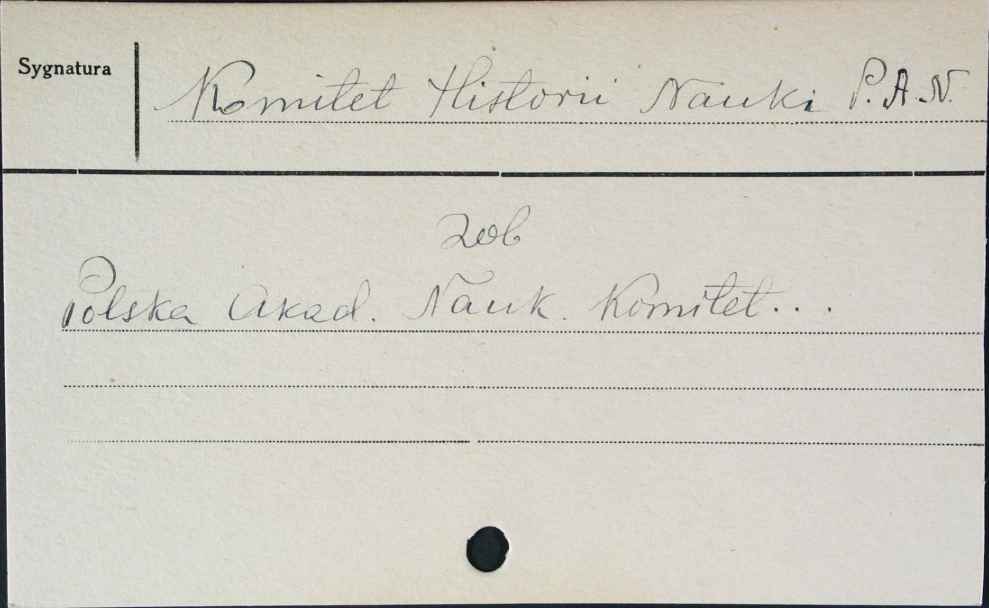 Sygnatura
Komitet Historii Nauki P.A.N.
zob
Polska Akad. Nauk. Komitet...